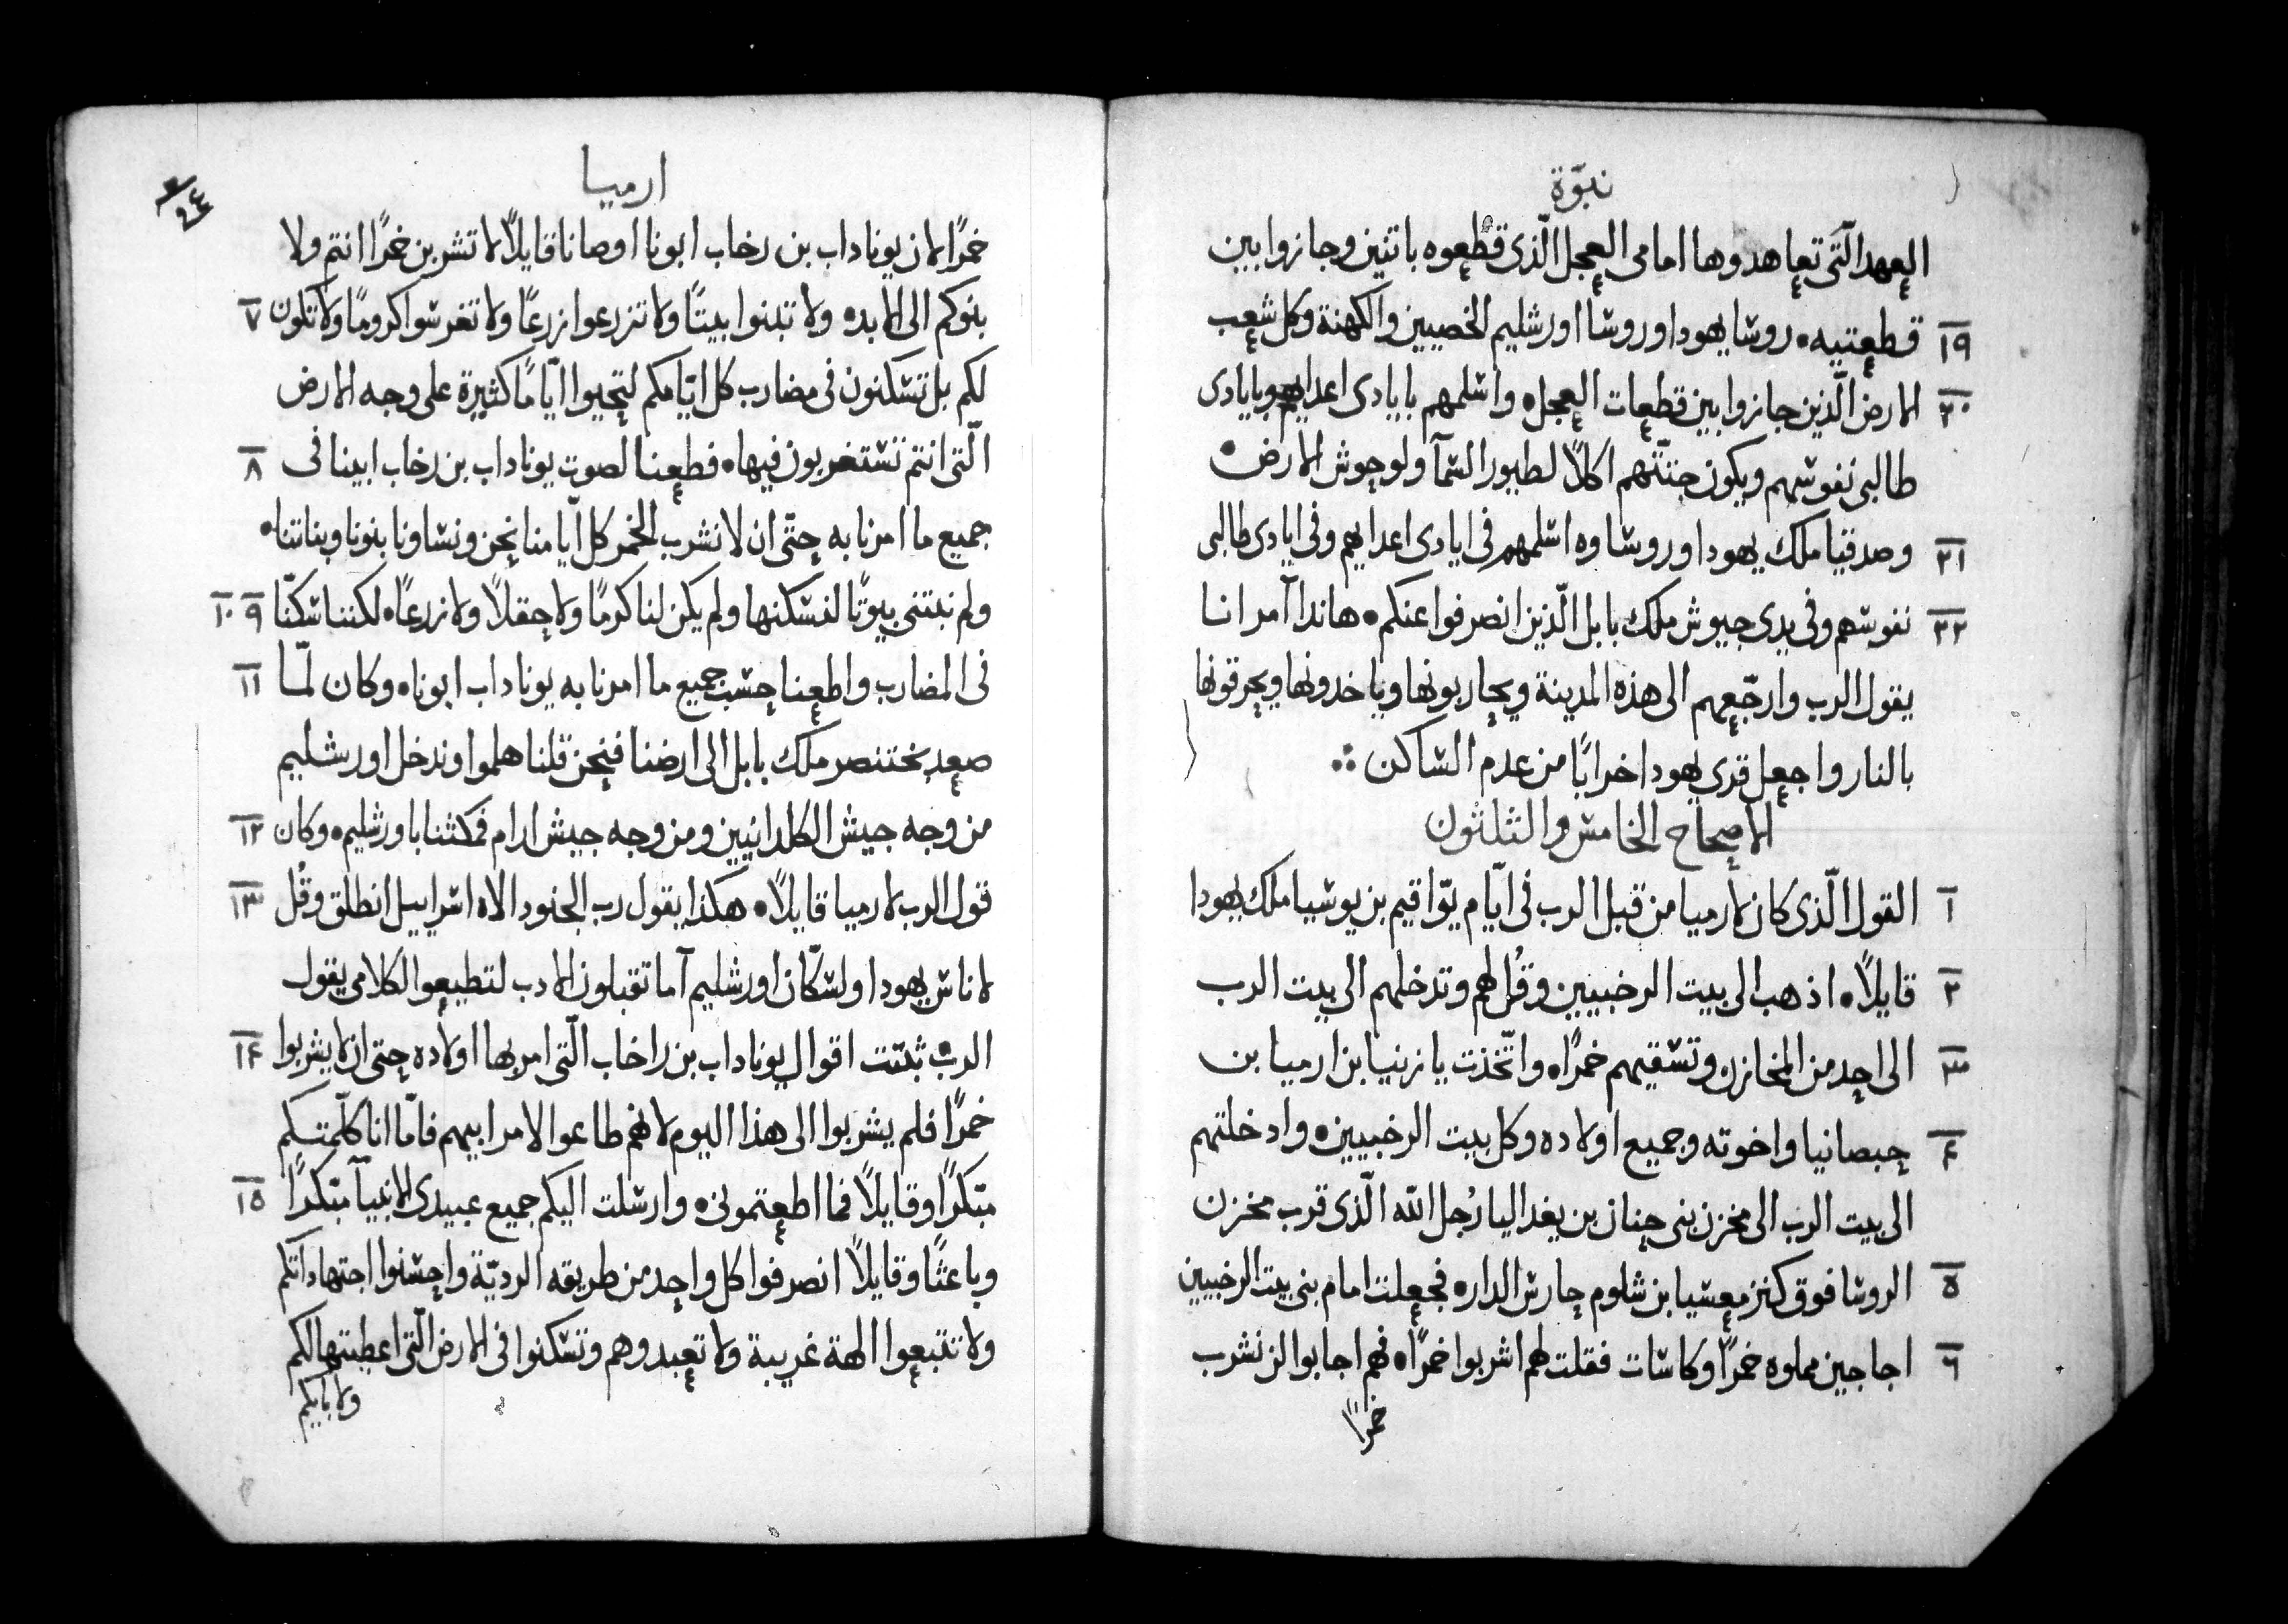 نبوّة
العهد الّتى تعاهدوها امامى العجل الّذى قطعوه باثنين وجازوا بين
١٩ قطعتيه ٠ روسا يهودا وروسا اورشليم الخصيين والكهنة وكل شعب
٢٠ الارض الّذين جازوا بين قطعات العجل ٠ واسلمهم بايادى اعدايهم وبايادى
طالبى نفوسهم ويكون جثتهم اكلاً لطيور السمآ ولوحوش الارض ٠
٢١ وصدقيا ملك يهودا وروساوه اسلمهم فى ايادى اعدايهم وفى ايادى طالبى
٢٢ نفوسهم وفى يدى جيوش ملك بابل الّذين انصرفوا عنكم ٠ هانذا آمر انا
يقول الرب وارجّعهم الى هذه المدينة ويحاربونها وياخدونها ويحرقونها
بالنار واجعل قرى يهودا خرابًا من عدم الساكن
الاصحاح الخامس والثلثون
١ القول الّذى كان لارميا من قبل الرب فى ايّام يوّاقيم بن يوسيا ملك يهودا
٢ قايلاً ٠ اذهب الى بيت الرخبيين وقُل لهم وتدخلهم الى بيت الرب
٣ الى احد من المخازن وتسقيهم خمرًا ٠ واتّخذت يازنيا بن ارميا بن
٤ حبصانيا واخوته وجميع اولاده وكل بيت الرخبيين ٠ وادخلتهم
الى بيت الرب الى مخزن بنى حنان بن يغداليا رُجل الله الّذى قرب مخزن
٥ الروسا فوق كنز معسيا بن شلوم حارس الدار ٠ فجعلت امام بنى بيت الرخبيين
٦ اجاجين مملوه خمرًا وكاسات فقلت لهم اشربوا خمرًا ٠ فهم اجابوا لن نشرب
خمرًا
ارميا
خمرًا لان يوناداب بن رخاب ابونا اوصانا قايلاً لا تشربن خمرًا انتم ولا
بنوكم الى الابد ٠ ولا تبنوا بيتًا ولا تزرعوا زرعًا ولا تغرسوا كرومًا ولا تكون ٧
لكم بل تسكنون فى مضارب كل ايّامكم لتحيوا ايّامًا كثيرة على وجه الارض
الّتى انتم تستغربون فيها ٠ فطعنا لصوت يوناداب بن رخاب ابينا فى ٨
جميع ما امرنا به حتّى ان لا نشرب الخمر كل ايّامنا نحن ونساونا بنونا وبناتنا ٠
ولم نبتنى بيوتًا لنسكنها ولم يكن لنا كرمًا ولا حقلاً ولا زرعًا ٠ لكننا سكنّا ٩ ١٠
فى المضارب واطعنا حسب جميع ما امرنا به يوناداب ابونا ٠ وكان لمّا ١١
صعد بختنصر ملك بابل الى ارضنا فنحن قلنا هلموا وندخل اورشليم
من وجه جيش الكلدانيين ومن وجه جيش ارام فمكثنا باورشليم ٠ وكان ١٢
قول الرب لارميا قايلاً ٠ هكذا يقول رب الجنود الاه اسراييل انطلق وقُل ١٣
لاناس يهودا ولسكّان اورشليم آما تقبلون الادب لتطيعوا لكلامى يقول
الرب ٠ ثبتت اقوال يوناداب بن راخاب الّتى امر بها اولاده حتى ان لا يشربوا ١٤
خمرًا فلم يشربوا الى هذا اليوم لانهم طاعوا لامر ابيهم فامّا انا كلّمتكم
مبّكرًا وقايلاً فما اطعتمونى ٠ وارسلت اليكم جميع عبيدى الانبيآ مبّكرًا ١٥
وباعثًا وقايلاً انصرفوا كل واحد من طريقه الرديّة واحسنوا اجتهاداتكم
ولا تتبعوا الهة غريبة ولا تعبدوهم وتسكنوا فى الارض الّتى اعطيتها لكم
ولابايكم